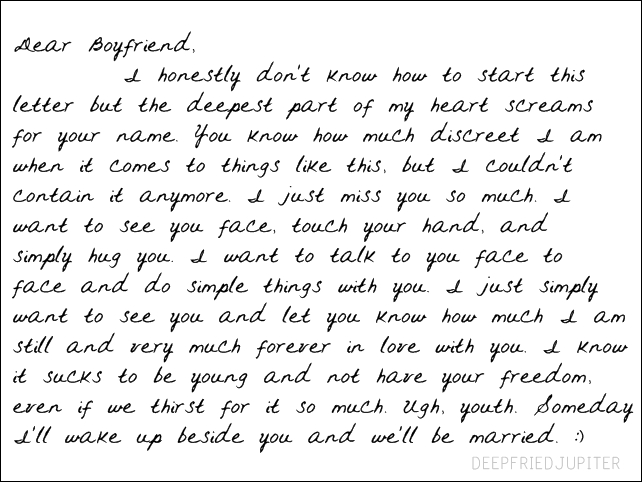 Dear Boyfriend,
I honestly don't know how to start this
letter but the deepest part of my heart screams
for your name. You know how much discreet I am
when it comes to things like this, but I couldn't
contain it anymore. I just miss you so much. I
want to see you face, touch your hand, and
simply hug you. I want to talk to you face to
face and do simple things with you. I just simply
want to see you and let you know how much I am
still and very much forever in love with you. I know
it sucks to be young and not have your freedom,
even if we thirst for it so much. Ugh, youth. Someday
I'll wake up beside you and we'll be married. :)
DEEPFRIEDJUPITER